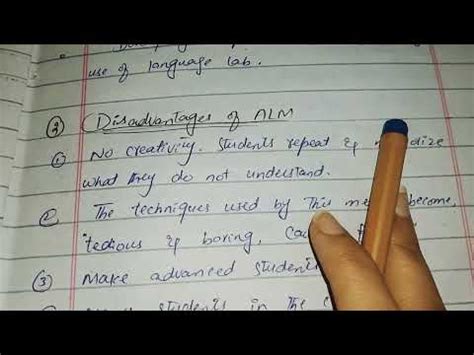 use of language lab.
② Disadvantages of ALM
① No creativity. Students repeat &
what they do not understand.
② The techniques used by this become
tedious & boring.
③ Make advanced students
students in the